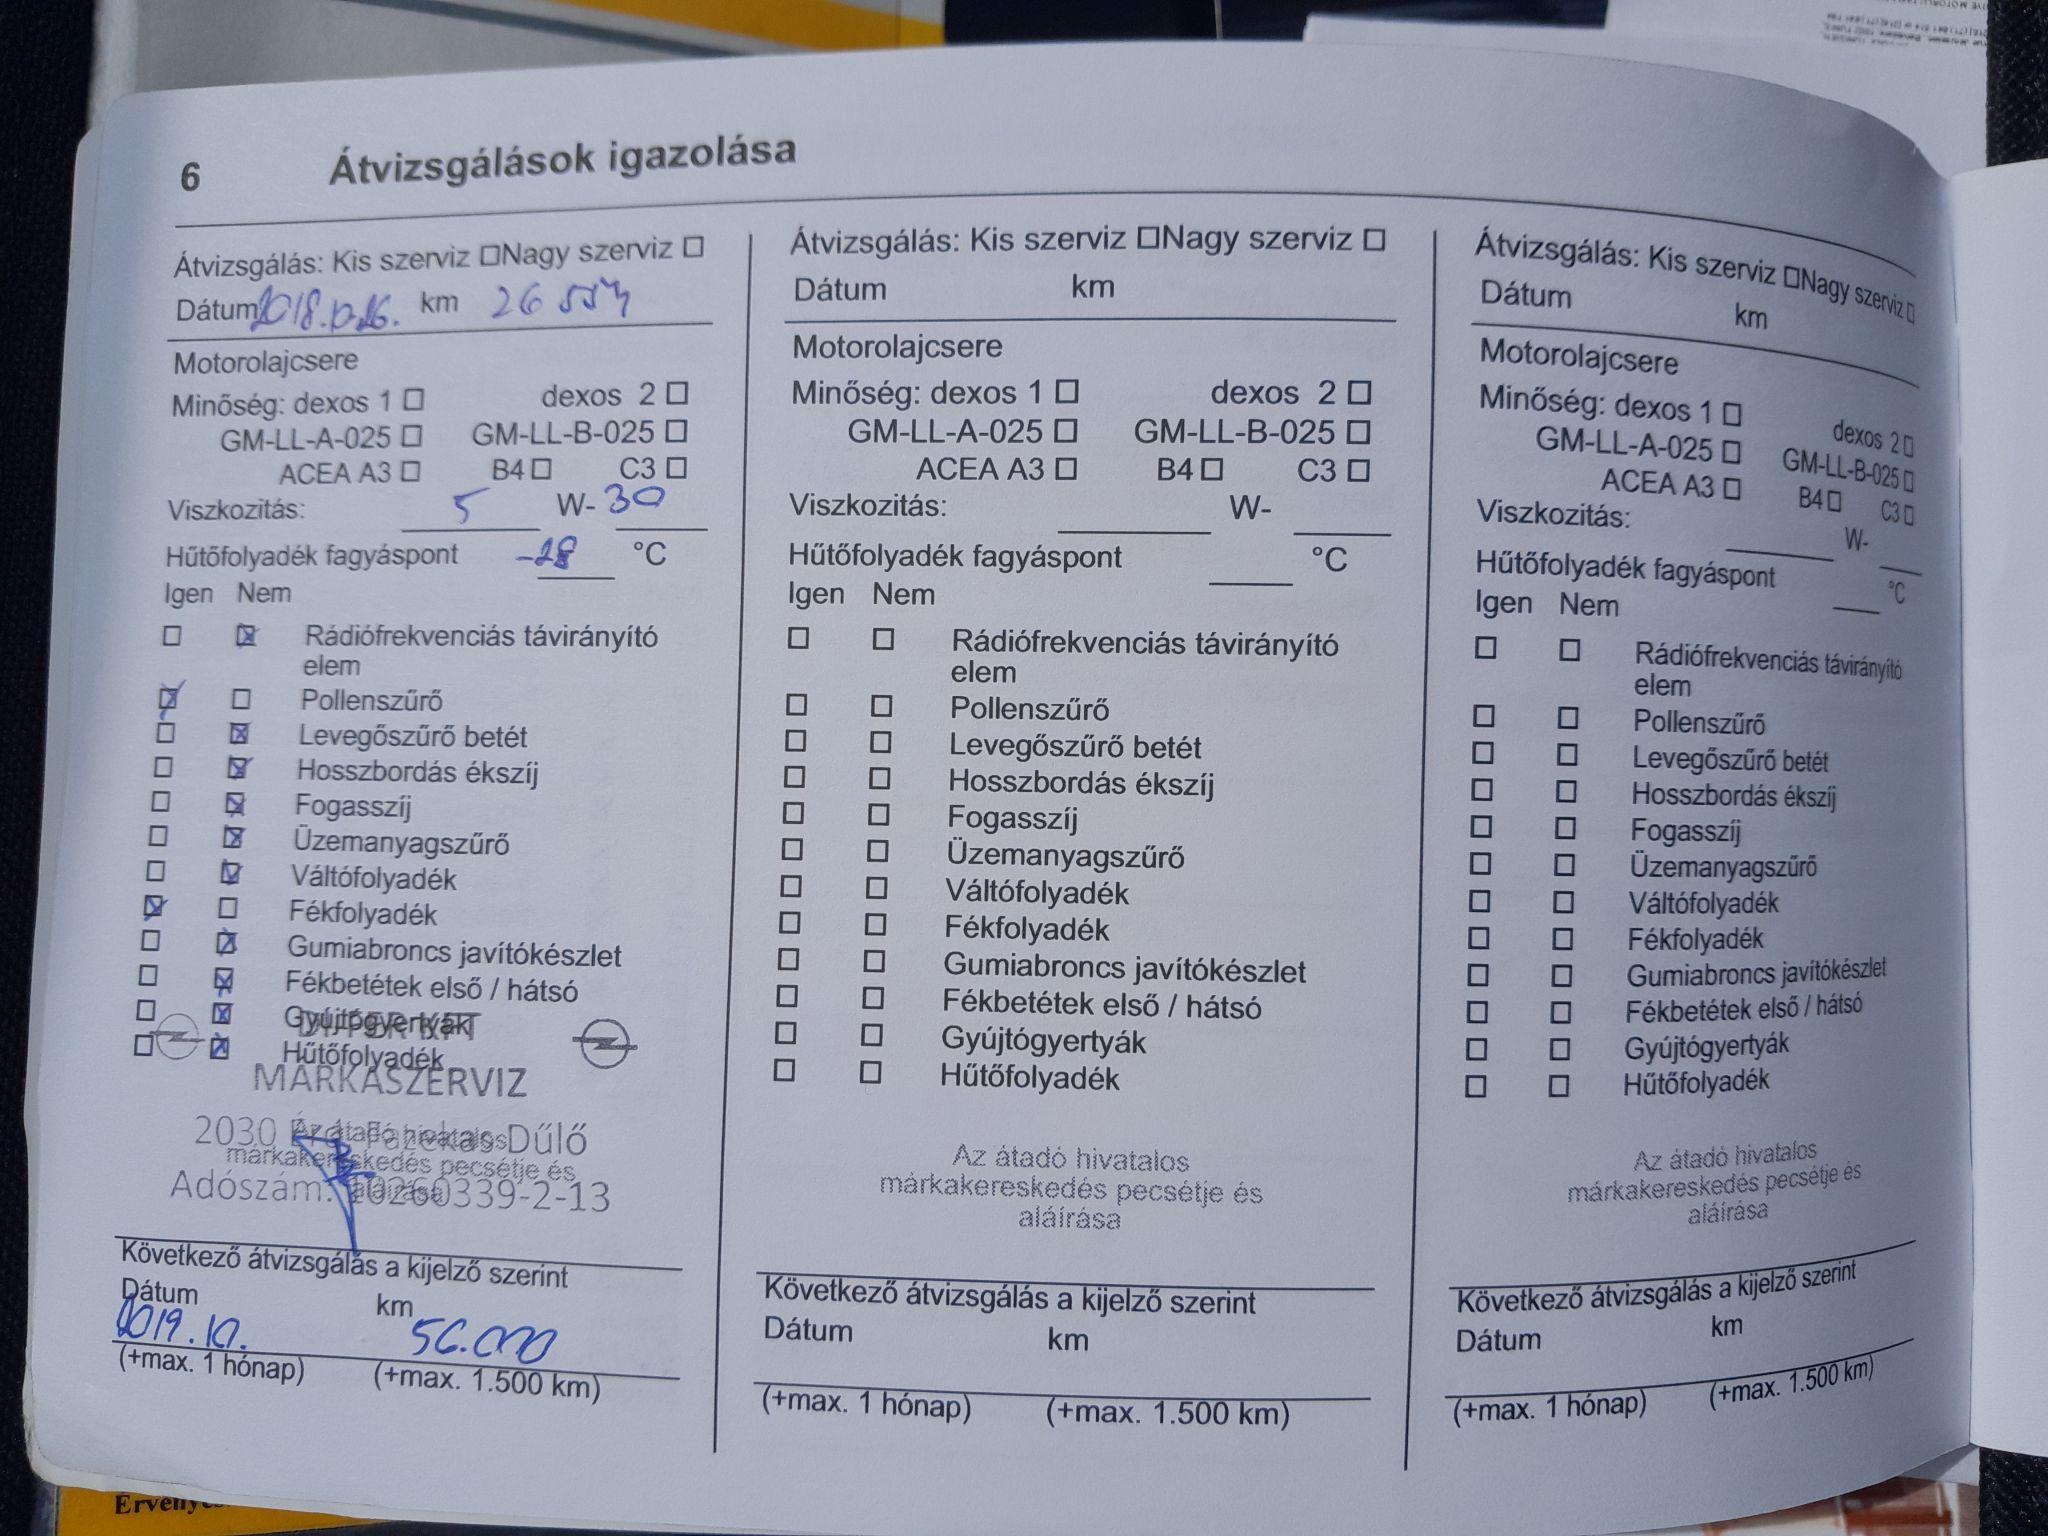 6 Átvizsgálások igazolása
Átvizsgálás: Kis szerviz ☐Nagy szerviz ☐
Dátum 2018.10.26. km 26
Motorolajcsere
Minőség: dexos 1 ☐ dexos 2 ☐
GM-LL-A-025 ☐ GM-LL-B-025 ☐
ACEA A3 ☐ B4 ☐ C3 ☐
Viszkozitás: 5 W- 30
Hűtőfolyadék fagyáspont -28 °C
Igen Nem
☐ ☒ Rádiófrekvenciás távirányító
elem
☒ ☐ Pollenszűrő
☐ ☒ Levegőszűrő betét
☐ ☒ Hosszbordás ékszíj
☐ ☒ Fogasszíj
☐ ☒ Üzemanyagszűrő
☐ ☒ Váltófolyadék
☒ ☐ Fékfolyadék
☐ ☒ Gumiabroncs javítókészlet
☐ ☒ Fékbetétek első / hátsó
☐ ☒ Gyújtógyertyák
☐ ☒ Hűtőfolyadék
KFT
MÁRKASZERVIZ
2030 Dűlő
Az átadó hivatalos
márkakereskedés pecsétje és
aláírása
Adószám: 10260339-2-13
Következő átvizsgálás a kijelző szerint
Dátum km
2019.10. 56.000
(+max. 1 hónap) (+max. 1.500 km)
Átvizsgálás: Kis szerviz ☐Nagy szerviz ☐
Dátum km
Motorolajcsere
Minőség: dexos 1 ☐ dexos 2 ☐
GM-LL-A-025 ☐ GM-LL-B-025 ☐
ACEA A3 ☐ B4 ☐ C3 ☐
Viszkozitás: W-
Hűtőfolyadék fagyáspont °C
Igen Nem
☐ ☐ Rádiófrekvenciás távirányító
elem
☐ ☐ Pollenszűrő
☐ ☐ Levegőszűrő betét
☐ ☐ Hosszbordás ékszíj
☐ ☐ Fogasszíj
☐ ☐ Üzemanyagszűrő
☐ ☐ Váltófolyadék
☐ ☐ Fékfolyadék
☐ ☐ Gumiabroncs javítókészlet
☐ ☐ Fékbetétek első / hátsó
☐ ☐ Gyújtógyertyák
☐ ☐ Hűtőfolyadék
Az átadó hivatalos
márkakereskedés pecsétje és
aláírása
Következő átvizsgálás a kijelző szerint
Dátum km
(+max. 1 hónap) (+max. 1.500 km)
Átvizsgálás: Kis szerviz ☐Nagy szerviz ☐
Dátum km
Motorolajcsere
Minőség: dexos 1 ☐ dexos 2 ☐
GM-LL-A-025 ☐ GM-LL-B-025 ☐
ACEA A3 ☐ B4 ☐ C3 ☐
Viszkozitás: W-
Hűtőfolyadék fagyáspont °C
Igen Nem
☐ ☐ Rádiófrekvenciás távirányító
elem
☐ ☐ Pollenszűrő
☐ ☐ Levegőszűrő betét
☐ ☐ Hosszbordás ékszíj
☐ ☐ Fogasszíj
☐ ☐ Üzemanyagszűrő
☐ ☐ Váltófolyadék
☐ ☐ Fékfolyadék
☐ ☐ Gumiabroncs javítókészlet
☐ ☐ Fékbetétek első / hátsó
☐ ☐ Gyújtógyertyák
☐ ☐ Hűtőfolyadék
Az átadó hivatalos
márkakereskedés pecsétje és
aláírása
Következő átvizsgálás a kijelző szerint
Dátum km
(+max. 1 hónap) (+max. 1.500 km)